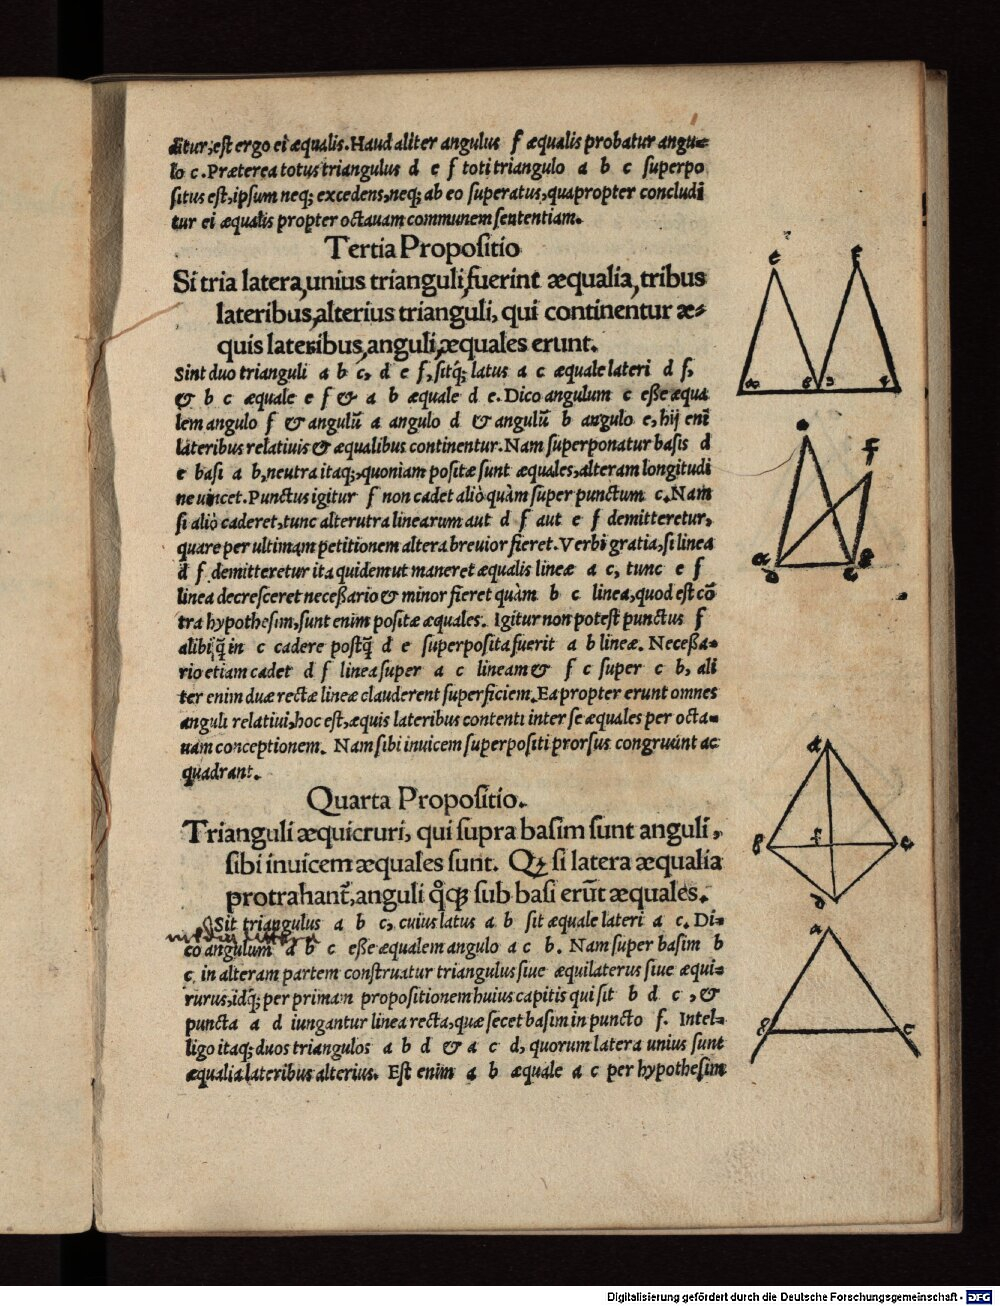 ditur, est ergo ei æqualis. Haud aliter angulus f æqualis probatur angu=
lo c. Præterea totus triangulus d e f toti triangulo a b c superpo
situs est, ipsum neq; excedens, neq; ab eo superatus, quapropter concludi
tur ei æqualis propter octauam communem sententiam.
Tertia Propositio
Si tria latera, unius trianguli, fuerint æqualia, tribus
lateribus, alterius trianguli, qui continentur æ=
quis lateribus, anguli, æquales erunt.
Sint duo trianguli a b c, d e f, sitq́; latus a c æquale lateri d f,
& b c æquale e f & a b æquale d e. Dico angulum c esse æqua
lem angulo f & angulū a angulo d & angulū b angulo e, hij enī
lateribus relatiuis & æqualibus continentur. Nam superponatur basis d
e basi a b, neutra itaq;, quoniam positæ sunt æquales, alteram longitudi
ne uincet. Punctus igitur f non cadet aliò quàm super punctum c. Nam
si aliò caderet, tunc alterutra linearum aut d f aut e f demitteretur,
quare per ultimam petitionem altera breuior fieret. Verbi gratia, si linea
d f demitteretur ita quidem ut maneret æqualis lineæ a c, tunc e f
linea decresceret necessario & minor fieret quàm b c linea, quod est cō
tra hypothesim, sunt enim positæ æquales. Igitur non potest punctus f
alibi q̄ in c cadere postq̄ d e superposita fuerit a b lineæ. Necessa=
rio etiam cadet d f linea super a c lineam & f c super c b, ali
ter enim duæ rectæ lineæ clauderent superficiem. Ea propter erunt omnes
anguli relatiui, hoc est, æquis lateribus contenti inter se æquales per octa=
uam conceptionem. Nam sibi inuicem superpositi prorsus congruunt ac
quadrant.
Quarta Propositio.
Trianguli æquicruri, qui supra basim sunt anguli,
sibi inuicem æquales sunt. Qꝫ si latera æqualia
protrahant᷑, anguli q̊qꝫ sub basi erūt æquales.
Sit triangulus a b c, cuius latus a b sit æquale lateri a c. Di=
co angulum a b c esse æqualem angulo a c b. Nam super basim b
c in alteram partem construatur triangulus siue æquilaterus siue æqui=
rurus, idq́; per primam propositionem huius capitis qui sit b d c, &
puncta a d iungantur linea recta, quæ secet basim in puncto f. Intel=
ligo itaq; duos triangulos a b d & a c d, quorum latera unius sunt
æqualia lateribus alterius. Est enim a b æquale a c per hypothesim
c f
a b d e
c
f
a d b e
a
b f c
d
a
b c
Digitalisierung gefördert durch die Deutsche Forschungsgemeinschaft - DFG